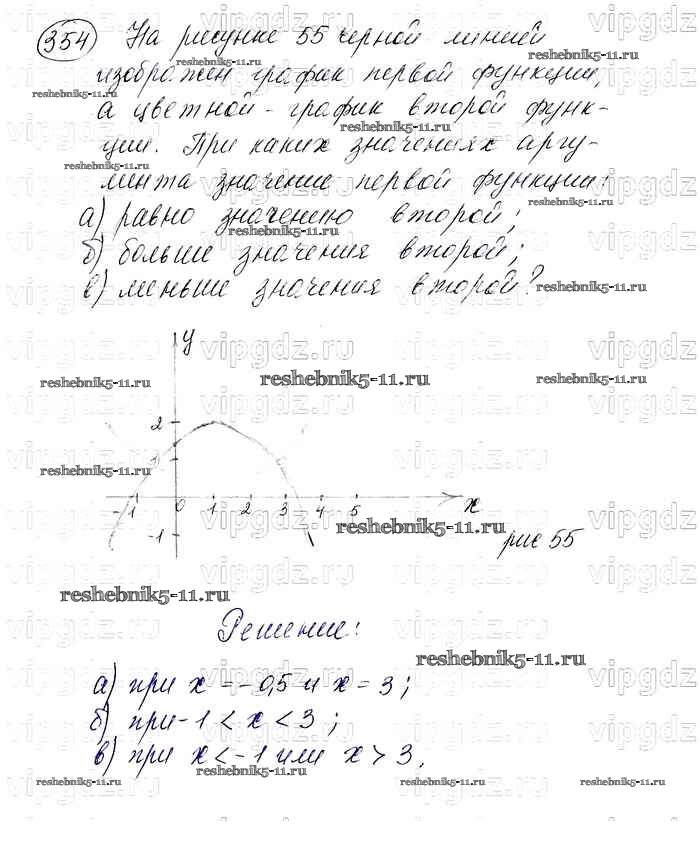 354 На рисунке 55 черной линией
изображен график первой функции,
а цветной - график второй функ-
ции. При каких значениях аргу-
мента значение первой функции:
а) равно значению второй;
б) больше значения второй;
в) меньше значения второй?
y
2
1
-1 0 1 2 3 4 5 x
-1
рис 55
Решение:
а) при x = -0,5 и x = 3;
б) при -1 < x < 3;
в) при x < -1 или x > 3.
vipgdz.ru
reshebnik5-11.ru